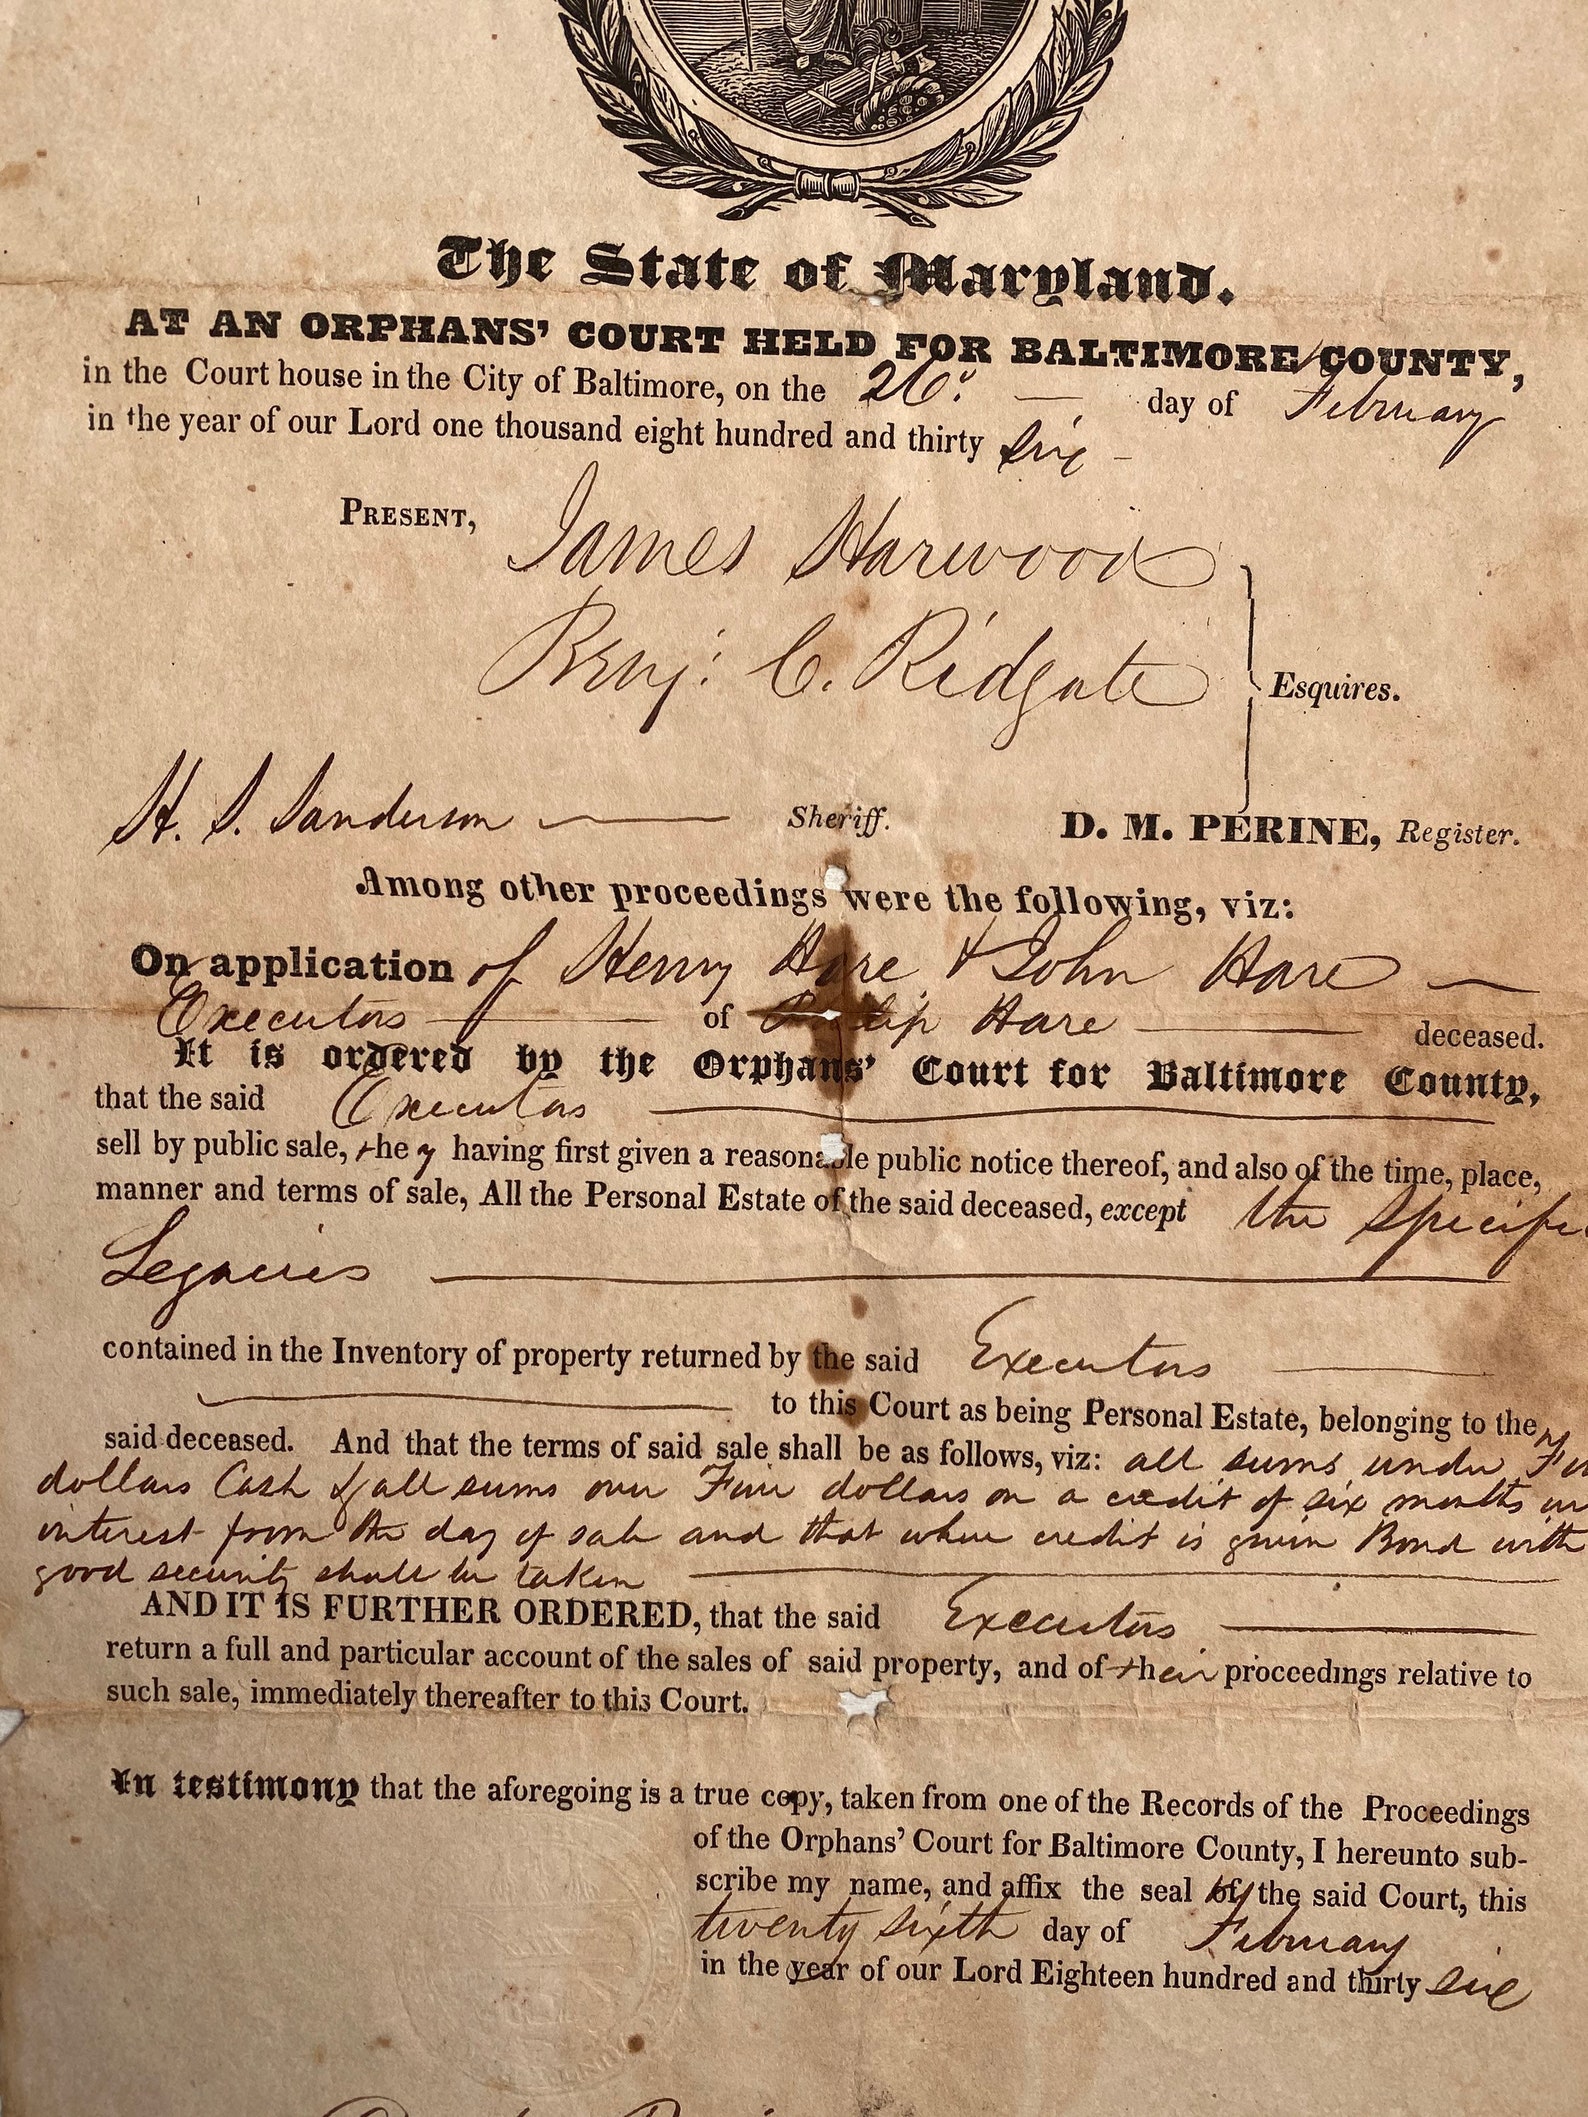 The State of Maryland.
AT AN ORPHANS' COURT HELD FOR BALTIMORE COUNTY,
in the Court house in the City of Baltimore, on the 26. — day of February
in the year of our Lord one thousand eight hundred and thirty six —
PRESENT, James Harwood
Benj: C. Ridgate
Esquires.
H. S. Sanderson — Sheriff. D. M. PERINE, Register.
Among other proceedings were the following, viz:
On application of Henry Hare & John Hare —
Executors — of Philip Hare — deceased.
It is ordered by the Orphans' Court for Baltimore County,
that the said Executors —
sell by public sale, they having first given a reasonable public notice thereof, and also of the time, place,
manner and terms of sale, All the Personal Estate of the said deceased, except the Specific
Legacies —
contained in the Inventory of property returned by the said Executors —
— to this Court as being Personal Estate, belonging to the
said deceased. And that the terms of said sale shall be as follows, viz: all sums under
dollars Cash & all sums over Five dollars on a credit of six months
interest from the day of sale and that where credit is given Bond with
good security shall be taken —
AND IT IS FURTHER ORDERED, that the said Executors —
return a full and particular account of the sales of said property, and of their proceedings relative to
such sale, immediately thereafter to this Court.
In testimony that the aforegoing is a true copy, taken from one of the Records of the Proceedings
of the Orphans' Court for Baltimore County, I hereunto sub-
scribe my name, and affix the seal of the said Court, this
twenty sixth day of February
in the year of our Lord Eighteen hundred and thirty six